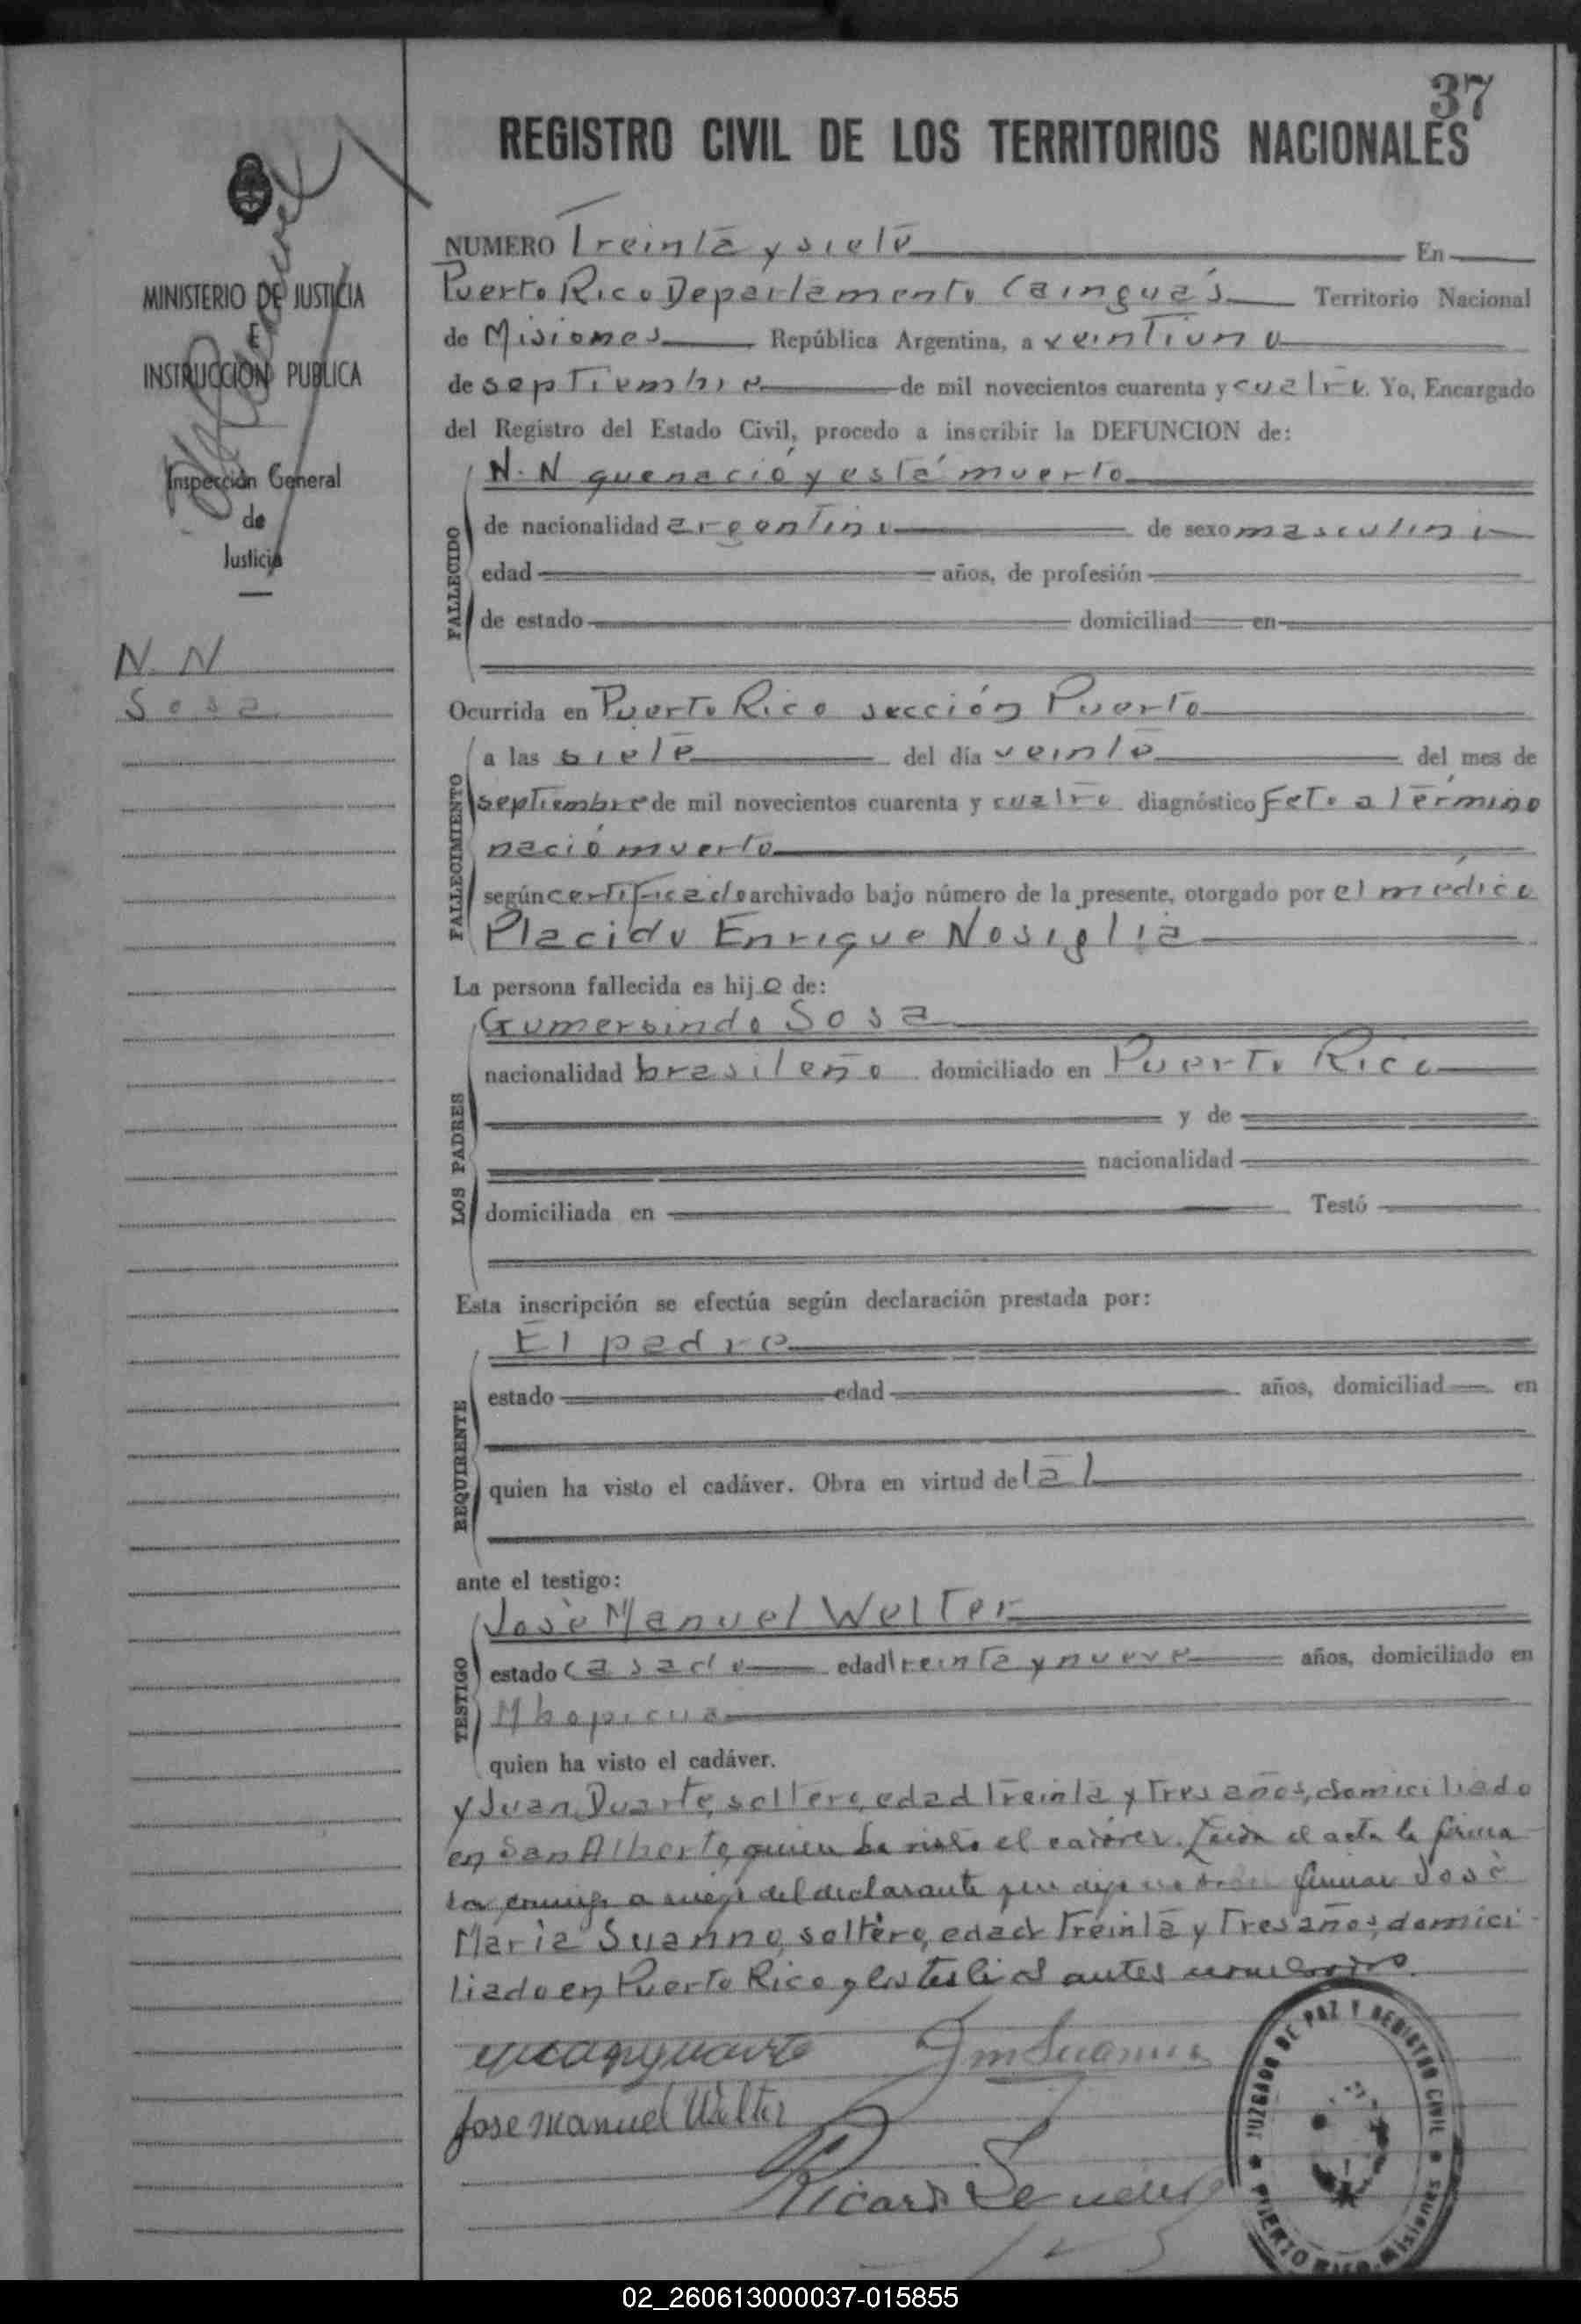 37
REGISTRO CIVIL DE LOS TERRITORIOS NACIONALES
MINISTERIO DE JUSTICIA
E
INSTRUCCIÓN PUBLICA
Inspección General
de
Justicia
N. N
Sosa
NUMERO Treinta y siete En
Puerto Rico Departamento Cainguás Territorio Nacional
de Misiones República Argentina, a veintiuno
de septiembre de mil novecientos cuarenta y cuatro. Yo, Encargado
del Registro del Estado Civil, procedo a inscribir la DEFUNCION de:
FALLECIDO
N. N que nació y está muerto
de nacionalidad argentino de sexo masculino
edad años, de profesión
de estado domiciliad en
Ocurrida en Puerto Rico sección Puerto
FALLECIMIENTO
a las siete del día veinte del mes de
septiembre de mil novecientos cuarenta y cuatro diagnóstico Feto a término
nació muerto
según certificado archivado bajo número de la presente, otorgado por el médico
Placido Enrique Nosiglia
La persona fallecida es hijo de:
LOS PADRES
Gumersindo Sosa
nacionalidad brasileño domiciliado en Puerto Rico
y de
nacionalidad
domiciliada en Testó
Esta inscripción se efectúa según declaración prestada por:
REQUIRENTE
El padre
estado edad años, domiciliad en
quien ha visto el cadáver. Obra en virtud de tal
ante el testigo:
TESTIGO
José Manuel Welter
estado casado edad treinta y nueve años, domiciliado en
Mbopicua
quien ha visto el cadáver.
y Juan Duarte, soltero, edad treinta y tres años, domiciliado
en San Alberto, quien ha visto el cadáver. Leída el acta la firma
a ruego del declarante que dijo no saber firmar José
María Suanno, soltero, edad treinta y tres años, domici-
liado en Puerto Rico y los testigos antes nombrados.
Jose Manuel Welter
JUZGADO DE PAZ Y REGISTRO CIVIL
PUERTO RICO - Misiones
02_260613000037-015855